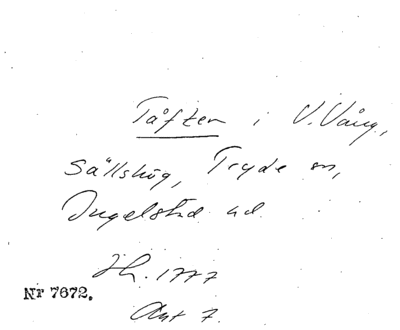 Tåften i V. Vång,
Sällshög, Tryde sn,
Ingelstad hd
Sh. 1777
Nr 7672.
Akt 7.